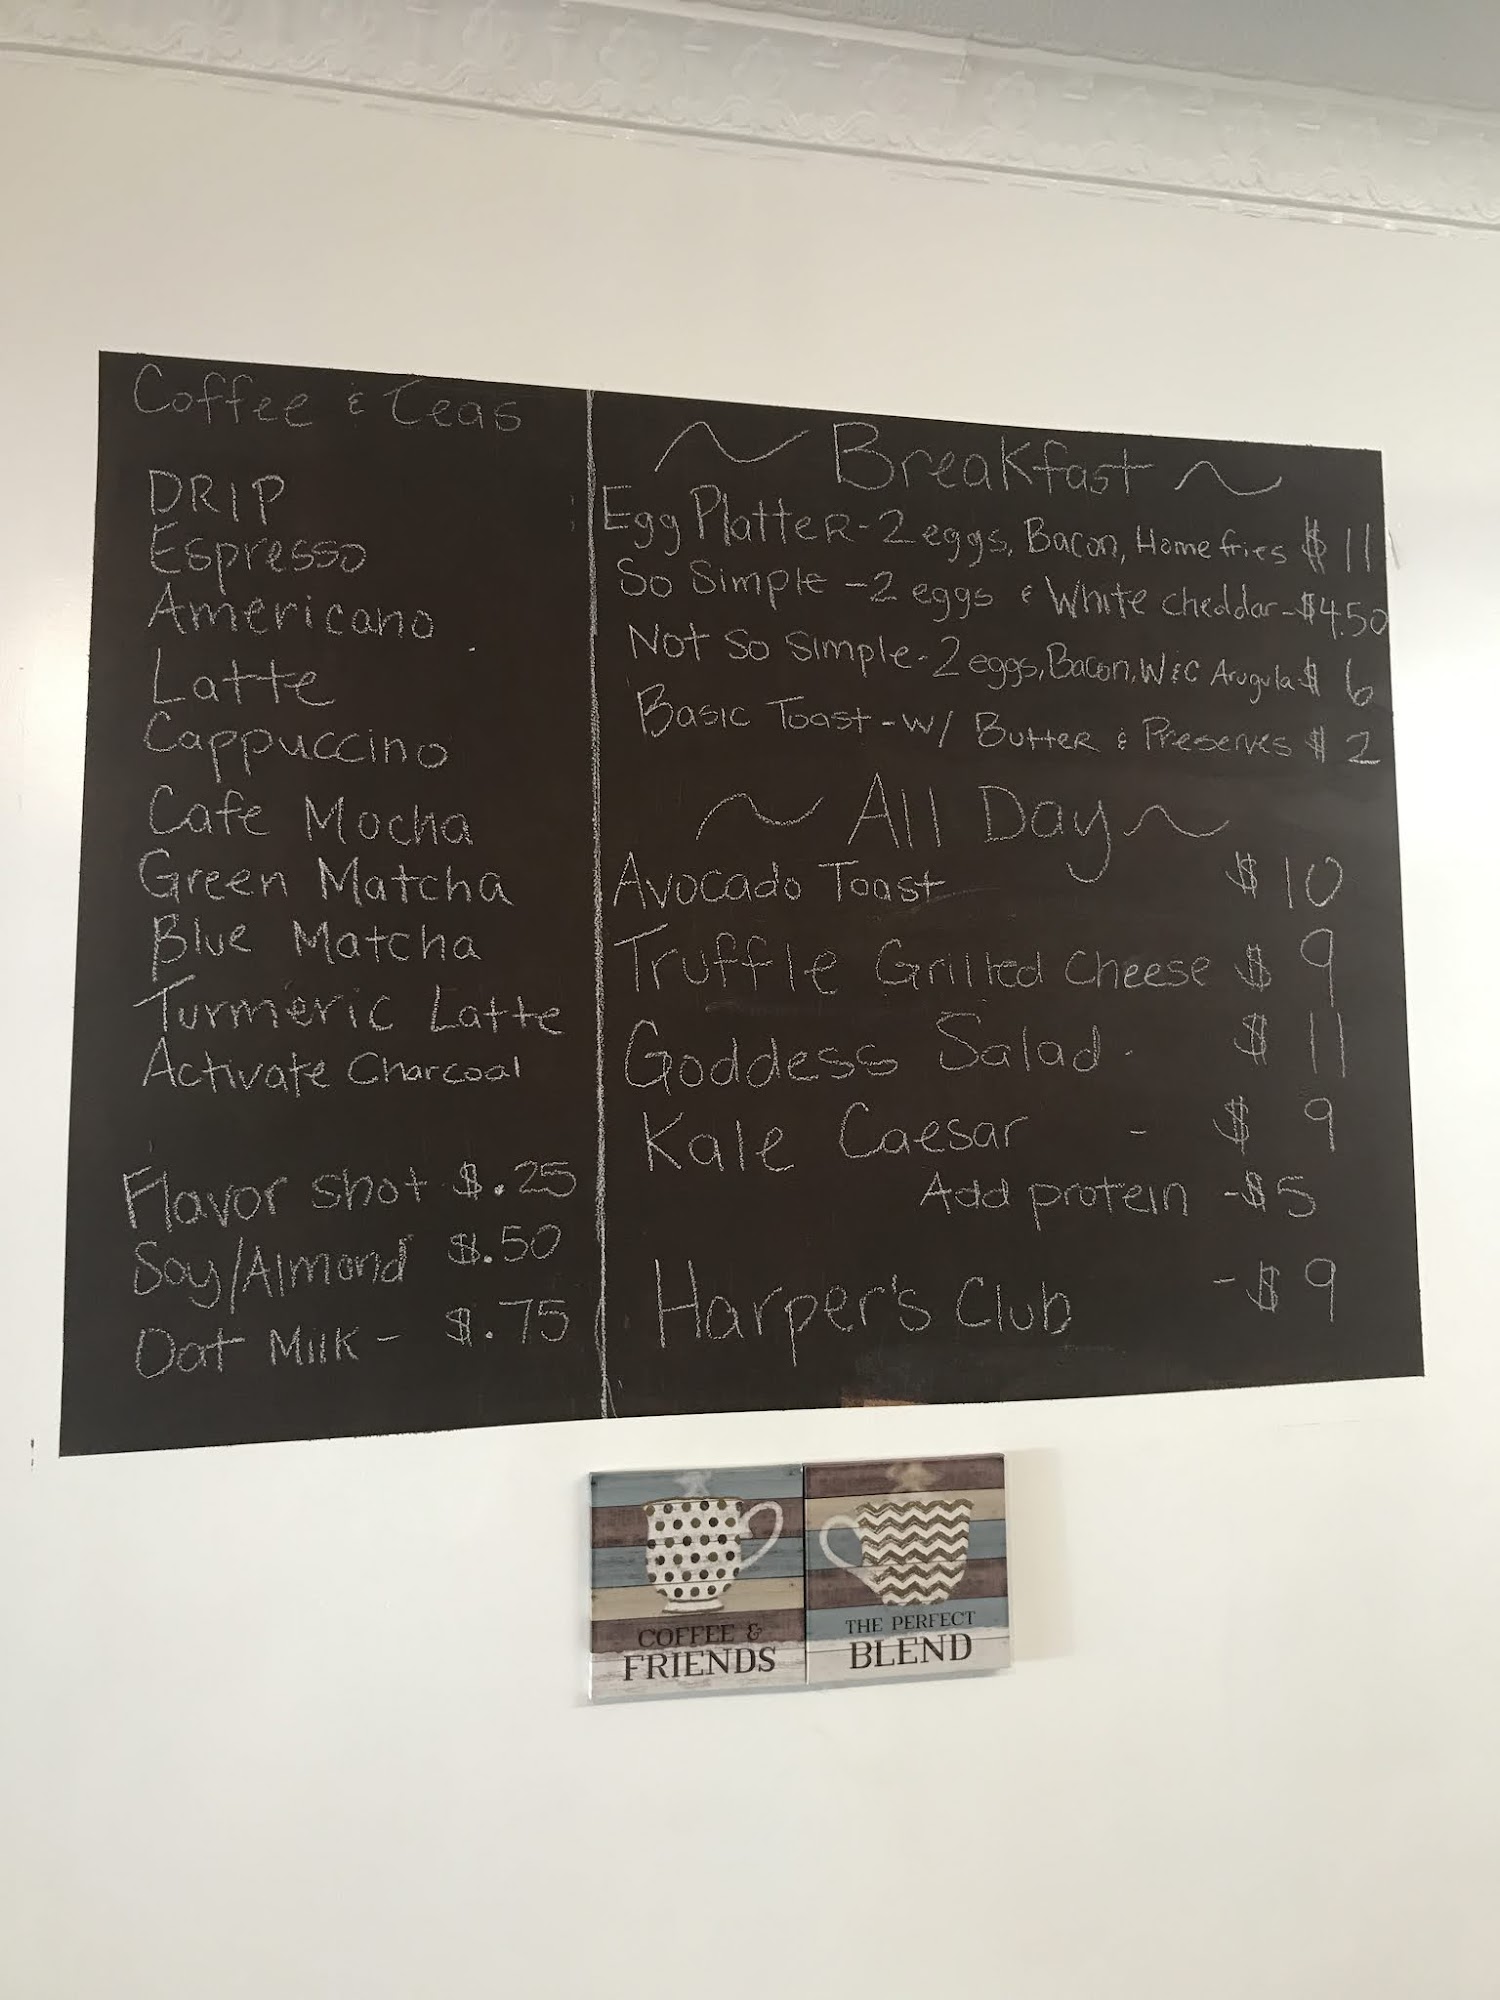 Coffee & Teas
DRIP
Espresso
Americano
Latte
Cappuccino
Cafe Mocha
Green Matcha
Blue Matcha
Turmeric Latte
Activate Charcoal
Flavor shot $.25
Soy/Almond $.50
Oat Milk - $.75
~ Breakfast ~
Egg Platter - 2 eggs, Bacon, Home fries $11
So Simple - 2 eggs & White cheddar - $4.50
Not So Simple - 2 eggs, Bacon, W&C Arugula - $6
Basic Toast - w/ Butter & Preserves $2
~ All Day ~
Avocado Toast $10
Truffle Grilled Cheese $9
Goddess Salad - $11
Kale Caesar - $9
Add protein - $5
Harper's Club - $9
COFFEE &
FRIENDS
THE PERFECT
BLEND